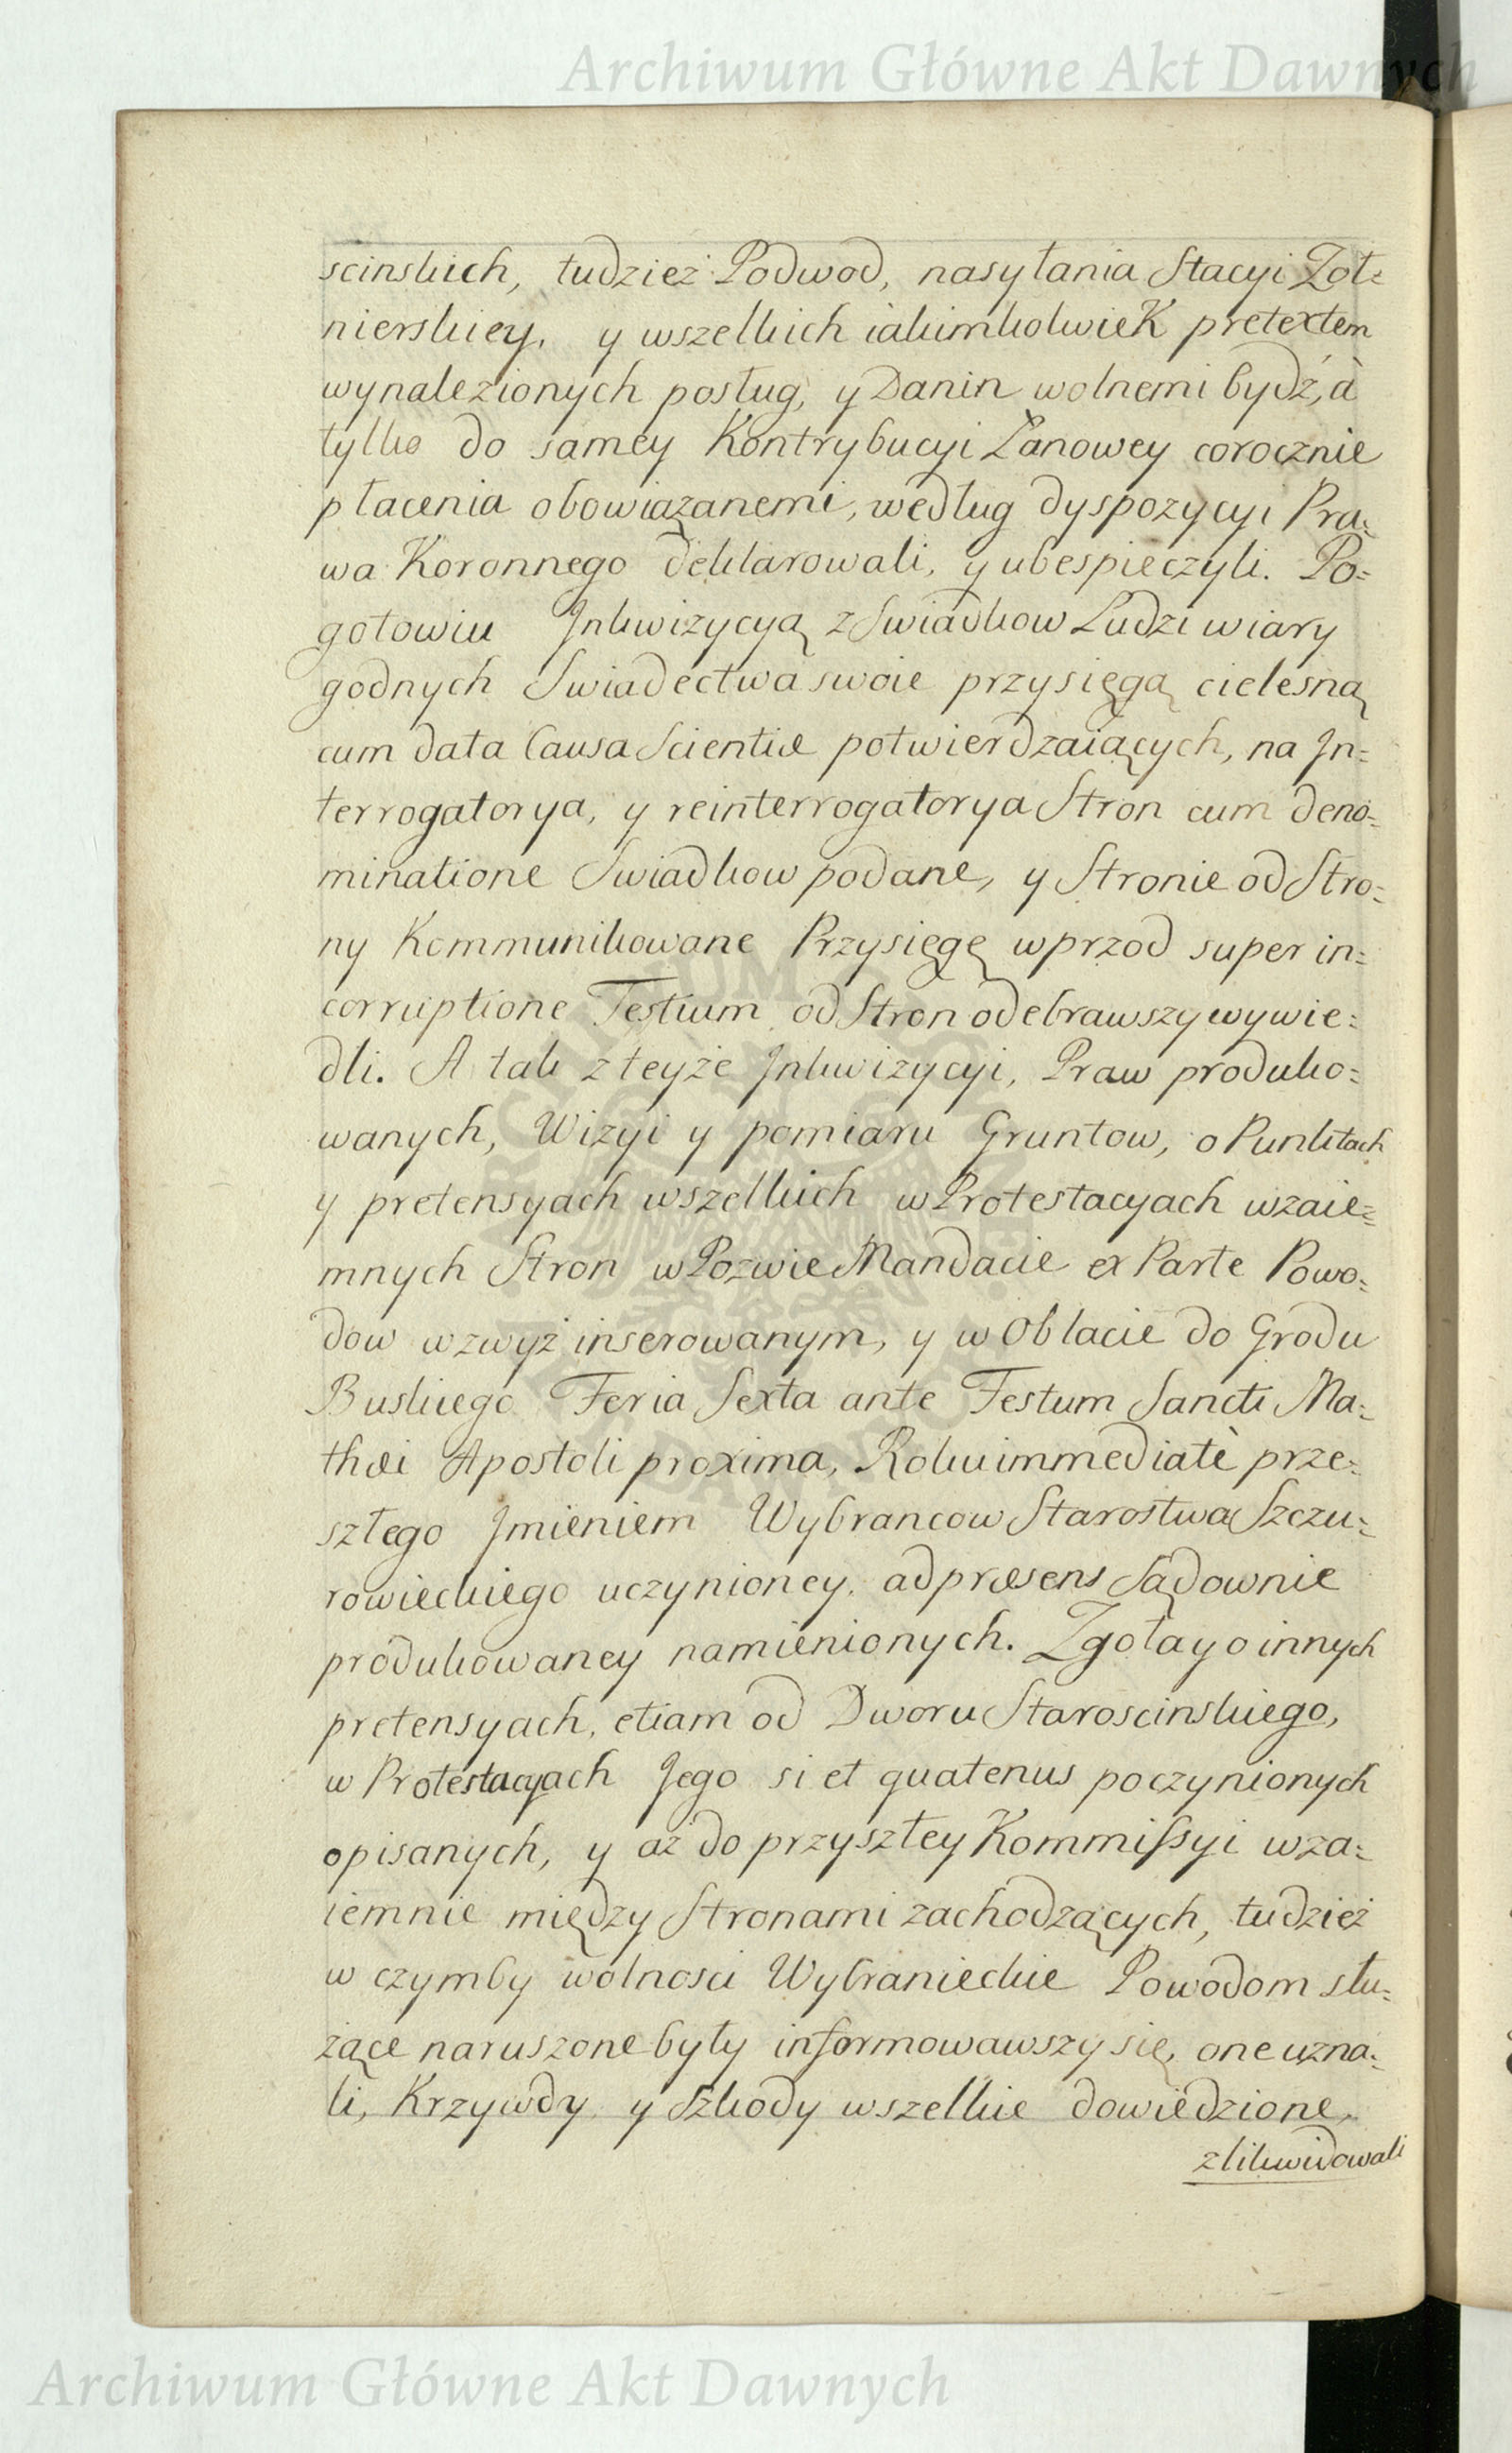 Archiwum Główne Akt Dawnych
scinskich, tudzież Podwod, nasyłania Stacyi Zoł=
nierskiey, y wszelkich iakimkolwieK pretextem
wynalezionych posług, y Danin wolnemi bydź, à
tylko do samey Kontrybucyi Łanowey corocznie
płacenia obowiązanemi, według dyspozycyi Pra=
wa Koronnego deklarowali, y ubespieczyli. Po=
gotowiu Jnkwizycyą z Swiadkow Ludzi wiary
godnych Swiadectwa swoie przysięgą cielesną
cum data Causa Scientiæ potwierdzaiących, na Jn=
terrogatorya, y reinterrogatorya Stron cum deno=
minatione Swiadkow podane, y Stronie od Stro=
ny Kommunikowane Przysięgę wprzod super in=
corruptione Testium od Stron odebrawszy wywie=
dli. A tak z teyże Jnkwizycyi, Praw produko=
wanych, Wizyi y pomiaru Gruntow, o Punktach
y pretensyach wszelkich w Protestacyach wzaie=
mnych Stron w Pozwie Mandacie ex Parte Powo=
dow wzwyż inserowanym, y w Oblacie do Grodu
Buskiego Feria Sexta ante Festum Sancti Ma=
thæi Apostoli proxima, Roku immediatè prze=
szłego Jmieniem Wybrancow Starostwa Szczu=
rowieckiego uczynioney, ad præsens Sądownie
produkowaney namienionych. Zgoła y o innych
pretensyach, etiam od Dworu Staroscinskiego,
w Protestacyach Jego si et quatenus poczynionych
opisanych, y aż do przyszłey Kommissyi wza=
iemnie między Stronami zachodzących, tudzież
w czymby wolnosci Wybranieckie Powodom słu=
żące naruszone były informowawszy się, one uzna=
li, Krzywdy y Szkody wszelkie dowiedzione,
zlikwidowali
Archiwum Główne Akt Dawnych